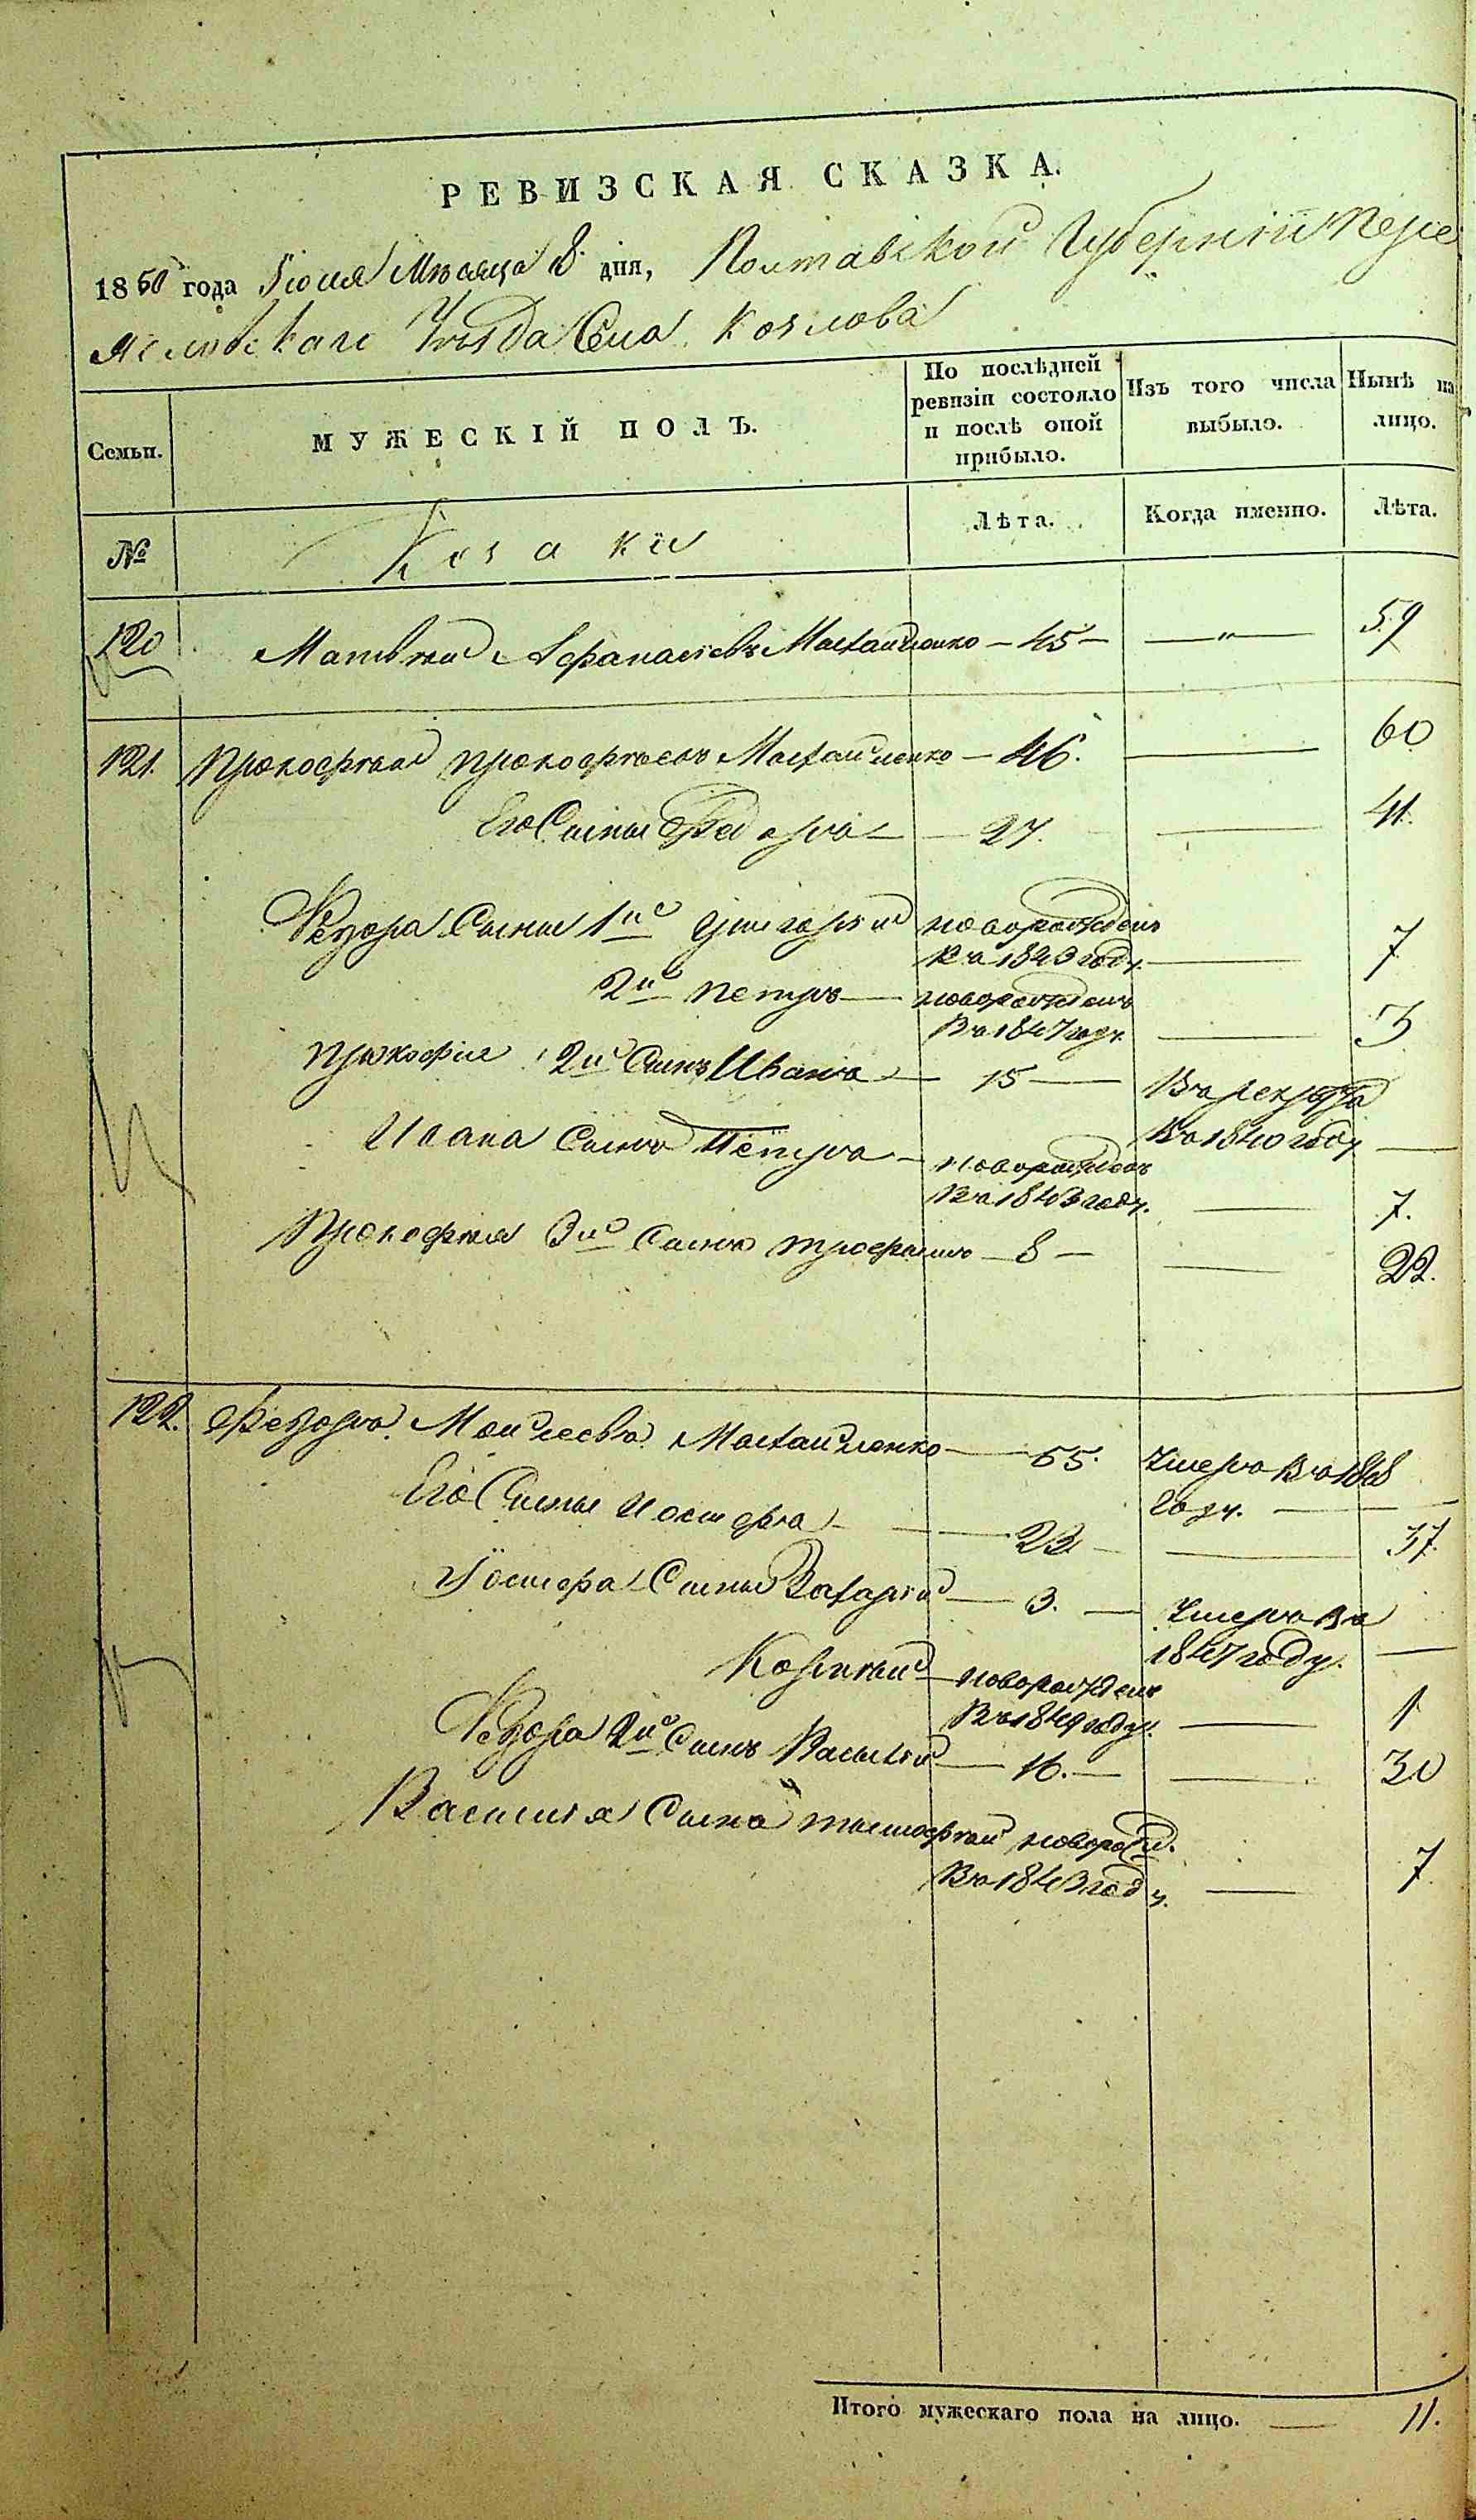 РЕВИЗСКАЯ СКАЗКА.
1850 года Іюля Мѣсяца 8 дня, Полтавской Губерніи Пере
яславскаго Уѣзда Села Козлова
Семьи. МУЖЕСКІЙ ПОЛЪ. По послѣдней ревизіи состояло и послѣ оной прибыло. Изъ того числа выбыло. Нынѣ на лицо.
№ Козаки Лѣта. Когда именно. Лѣта.
120 Матвей Афанасіевъ — 45 — — " — 59
121. Прокофѣй Прокофѣевъ — 46. — 60
Его Сынъ Федоръ — 27. — 41.
Федора Сыны 1й Григорій новорожденъ
въ 1843 году. — 7
2й Петръ — новорожденъ
въ 1847 году. — 3
Прокофія 2й Сынъ Иванъ — 15 — Въ рекруты
въ 1840 году —
Ивана Сынъ Петръ — новорожденъ
въ 1843 году. — 7.
Прокофѣя 3й Сынъ Трофимъ — 8 — — 22.
122. Федоръ Моисеевъ — 55. Умеръ въ 1848
году. —
Его Сынъ Иосифъ — 23 — — 37.
Іосифа Сынъ Захарій — 3. — Умеръ въ
1847 году. —
новорожденъ
въ 1849 году. — 1
Федора 2й Сынъ Василій — 16. — — 30
Василія Сынъ Тимофѣй новорожд.
въ 1843 году. — 7
Итого мужескаго пола на лицо. — 11.